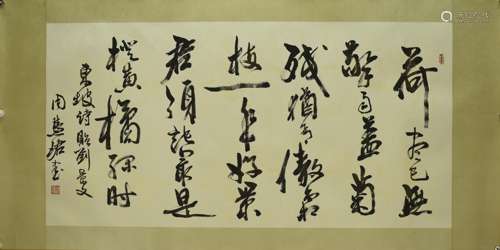 荷尽已無
擎雨盖菊
残猶有傲霜
枝一年好景
君須記最是
橙黄橘绿时
東坡诗贈劉景文
周慧珺书